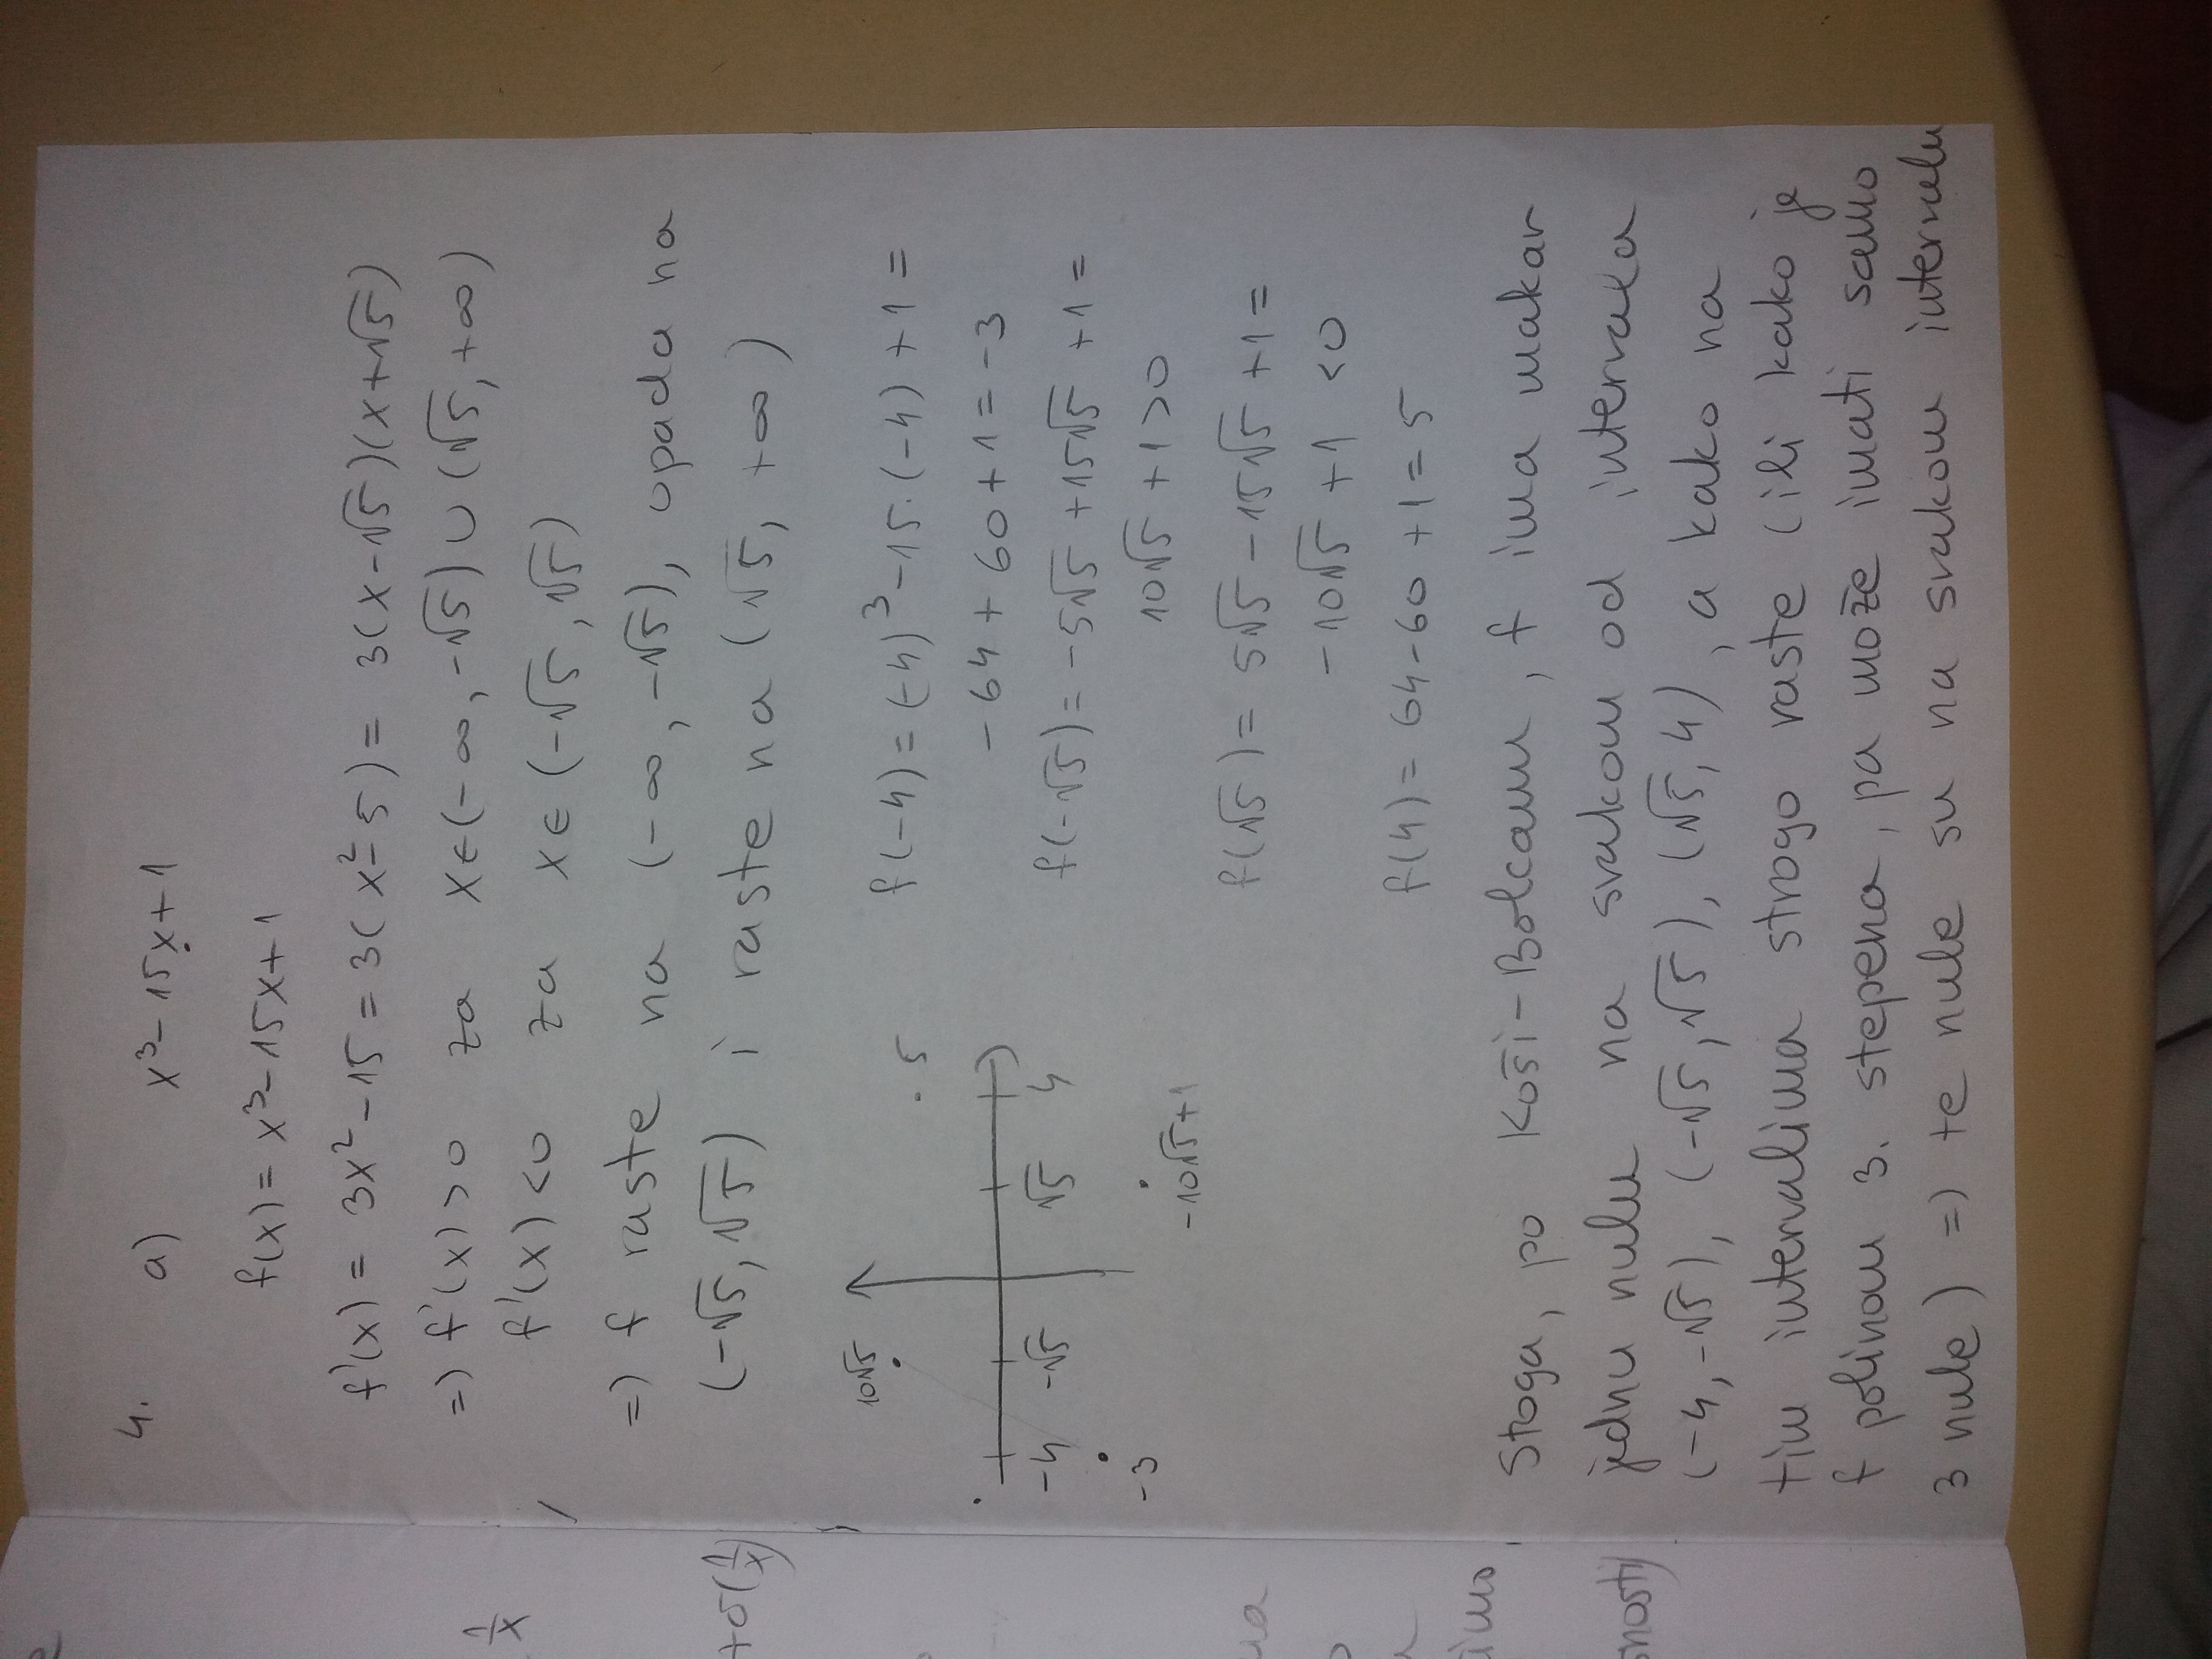 e
1/x
+o(1/x)
ua
timo
snosti)
4. a) x³-15x+1
f(x)= x³-15x+1
f'(x) = 3x²-15 = 3(x²-5) = 3(x-√5)(x+√5)
=) f'(x)>0 za x∈(-∞,-√5)∪(√5,+∞)
f'(x)<0 za x∈(-√5,√5)
=) f raste na (-∞,-√5), opada na
(-√5,√5) i raste na (√5, +∞)
10√5
5
-4 -√5 √5 4
-3
-10√5+1
f(-4)=(-4)³-15·(-4)+1=
-64+60+1=-3
f(-√5)=-5√5+15√5+1=
10√5+1>0
f(√5)= 5√5-15√5+1=
-10√5+1 <0
f(4)= 64-60+1=5
Stoga, po Koši-Bolcanu, f ima makar
jednu nulu na svakom od intervala
(-4,-√5), (-√5,√5), (√5,4), a kako na
tim intervalima strogo raste (ili kako je
f polinom 3. stepena, pa može imati samo
3 nule) =) te nule su na svakom intervalu